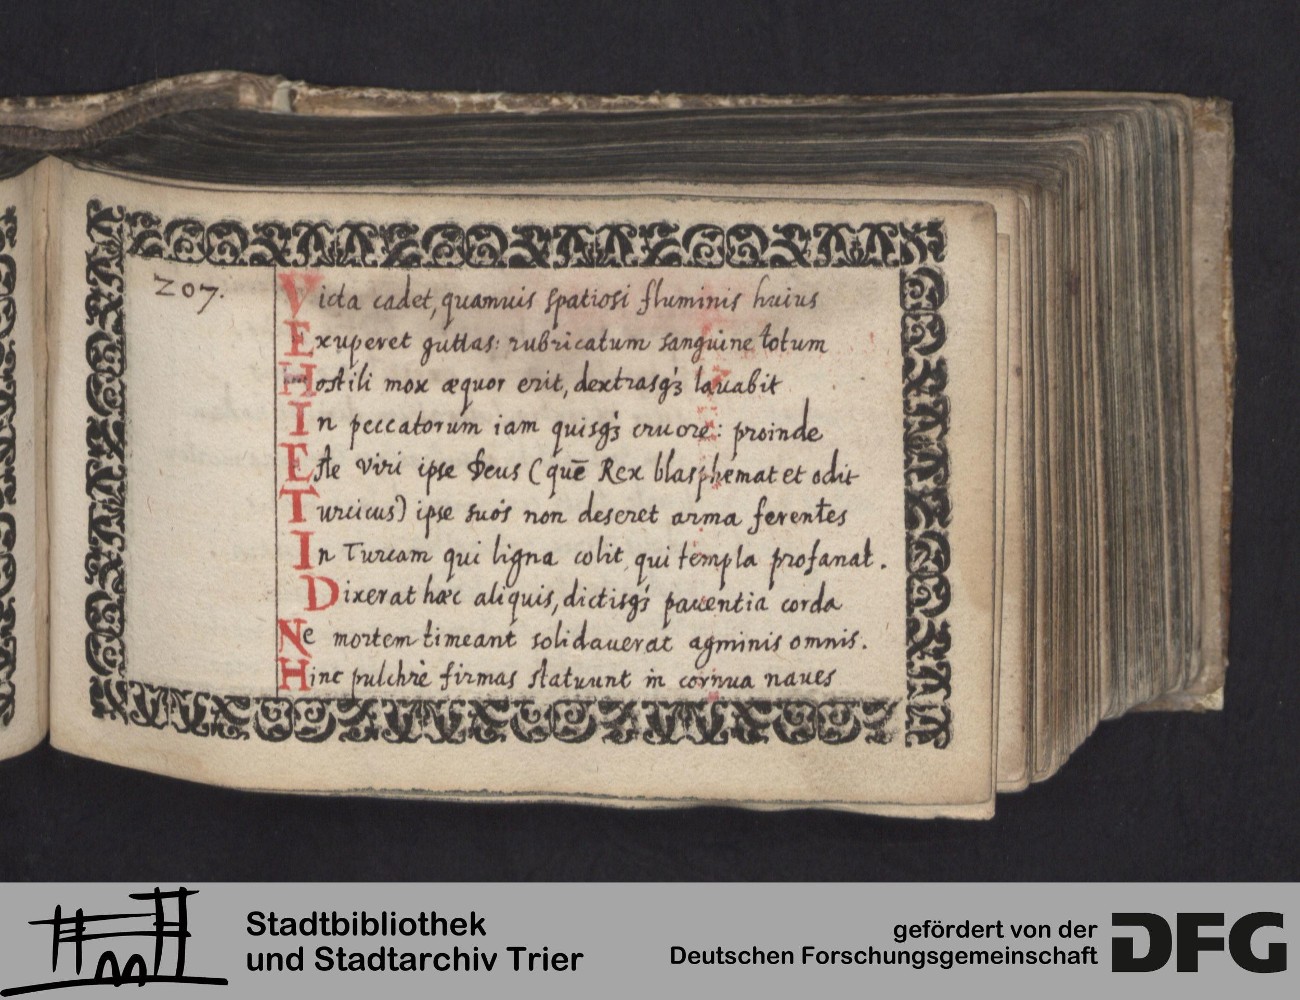 207.
Victa cadet, quamuis spatiosi fluminis huius
Exuperet guttas: rubricatum sanguine totum
Hostili mox æquor erit, dextrasq́ꝫ lauabit
In peccatorúm iam quisq́ꝫ cruore: proinde
Este viri ipse Deus (quē Rex blasphémat et odit
Turcicus) ipse suós non deseret arma ferentes
In Turcam qui ligna colit, qui templa profanat.
Dixerat hæc aliquis, dictisq́ꝫ pauentia corda
Ne mortem timeant solidauerat agminis omnis.
Hinc pulchrè firmas statuunt in cornua naues
Stadtbibliothek
und Stadtarchiv Trier
gefördert von der
Deutschen Forschungsgemeinschaft
DFG